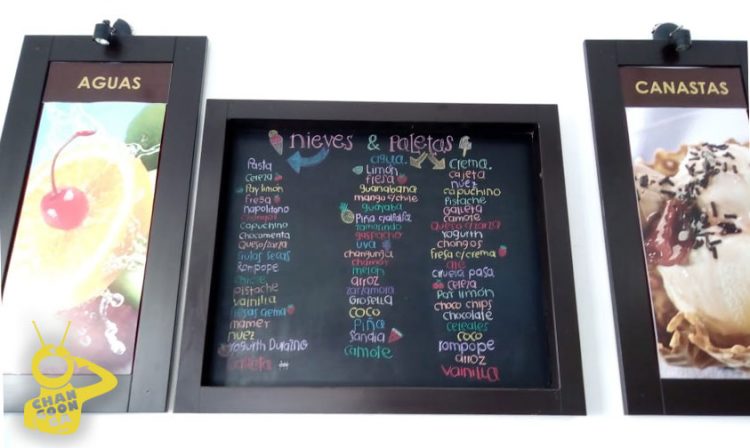 AGUAS
CANASTAS
nieves & Paletas
Pasta
cereza
Pay limón
Fresa
napolitano
capuchino
Chocomenta
Queso/zarza
Rompope
chicle
pistache
vainilla
mamey
nuez
Yogurth Durazno
agua.
Limón
fresa
guanabana
mango c/chile
guayaba
Piña
tamarindo
gaspacho
uva
changunga
chamoy
melon
arroz
zarzamora
Grosella
coco
Piña
Sandia
camote
crema.
cajeta
nuez
capuchino
Pistache
galleta
camote
Queso c/zarza
Yogurth
chongos
fresa c/crema
ciruela pasa
cereza
Pay limón
choco chips
chocolate
cereales
coco
rompope
arroz
vainilla
CHAN
GOON
GA